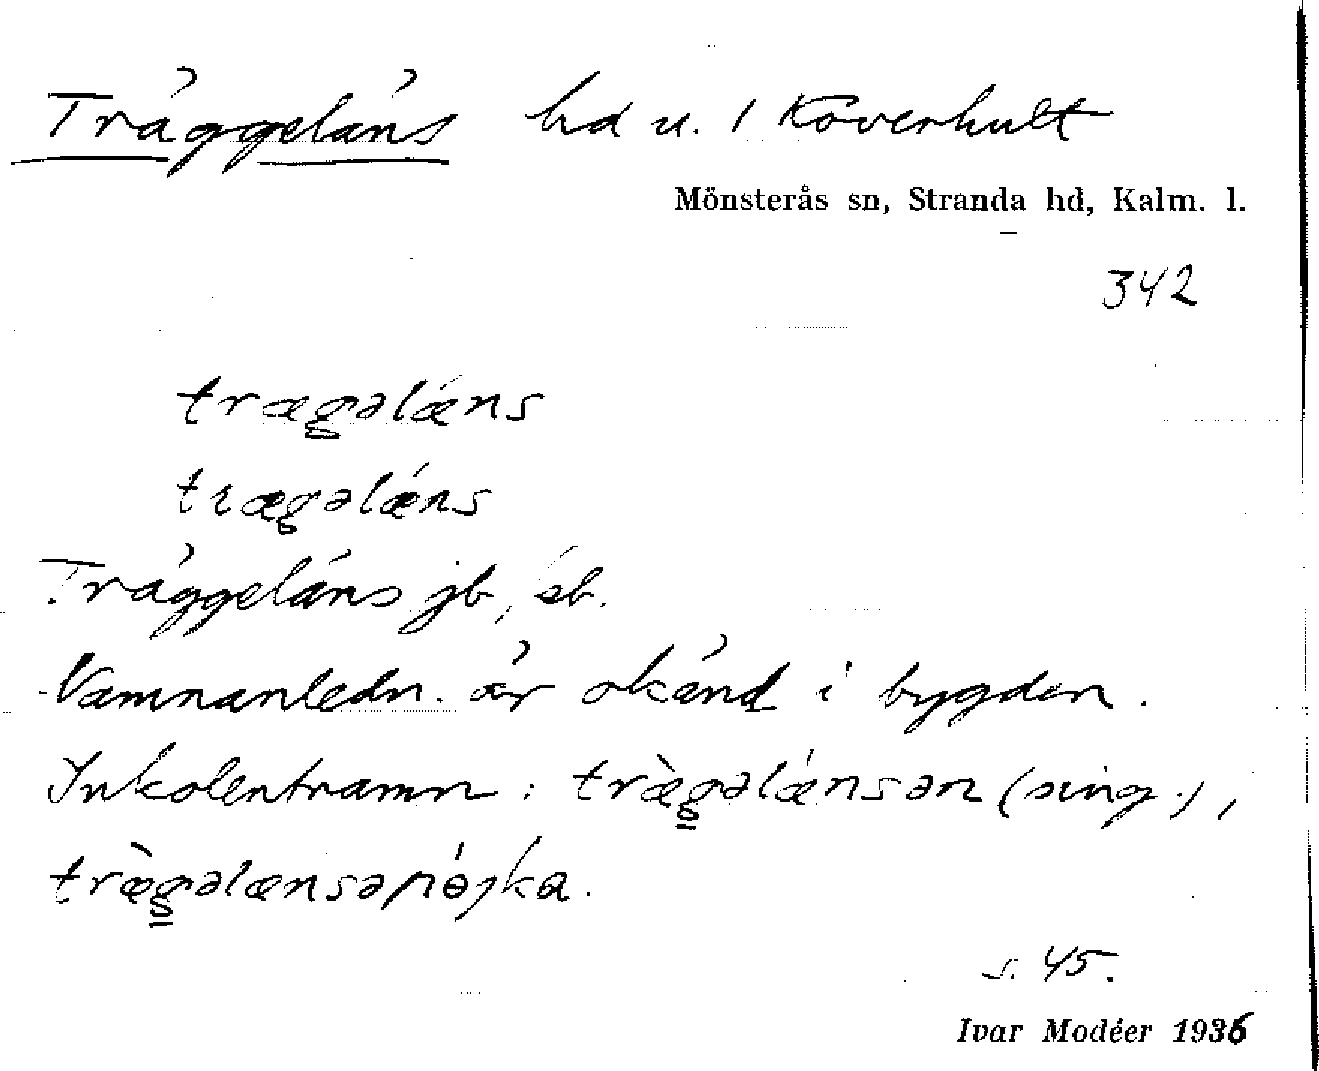 Träggeläns hd u. 1 Koverhult
Mönsterås sn, Stranda hd, Kalm. l.
342
trægəlǽns
trægəlǽns
Träggeläns jb, äb.
Namnanledn. är okänd i bygden.
Inkolentnamn: træ̀gəlǽnsən (sing.),
træ̀gəlænsəpɵ́jka.
s. 45.
Ivar Modéer 1936